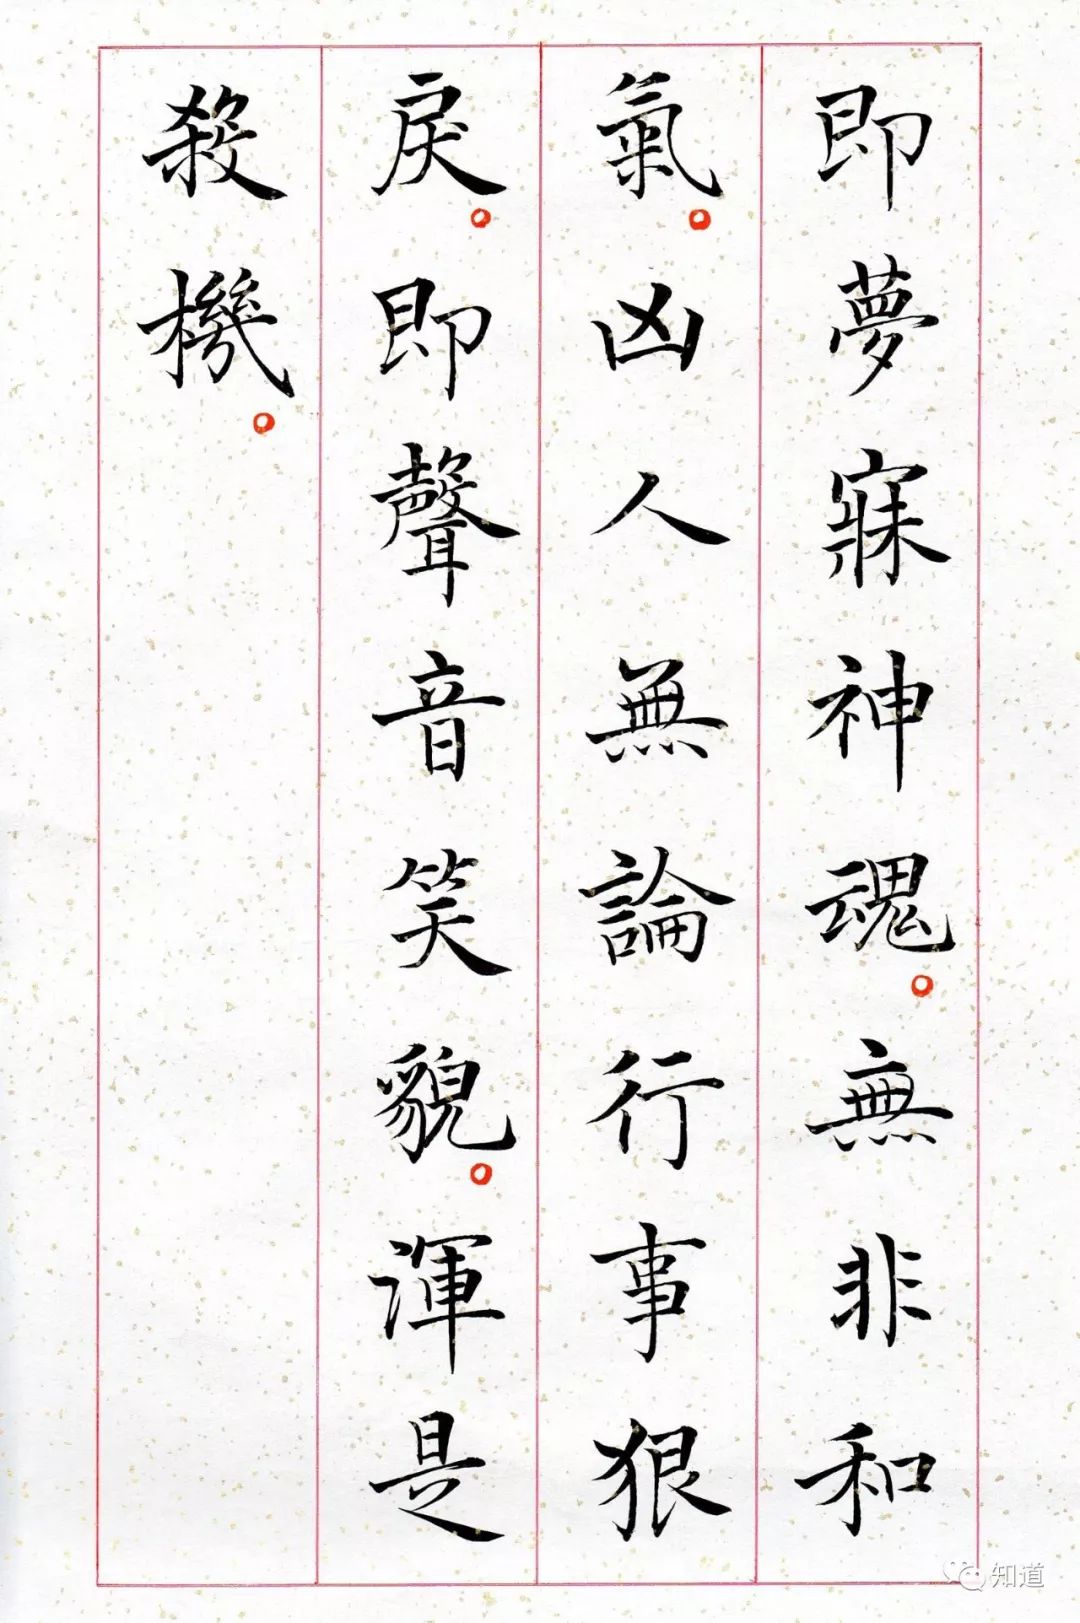 即夢寐神魂。無非和
氣。凶人無論行事狠
戾。即聲音笑貌。渾是
殺機。
知道